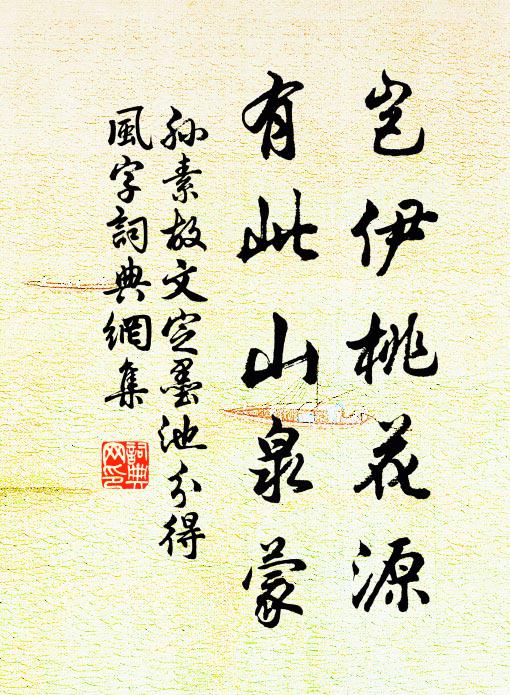 岂伊桃花源
有此山泉蒙
孙素故文定墨池分得
風字詞典網集
詞典
网印